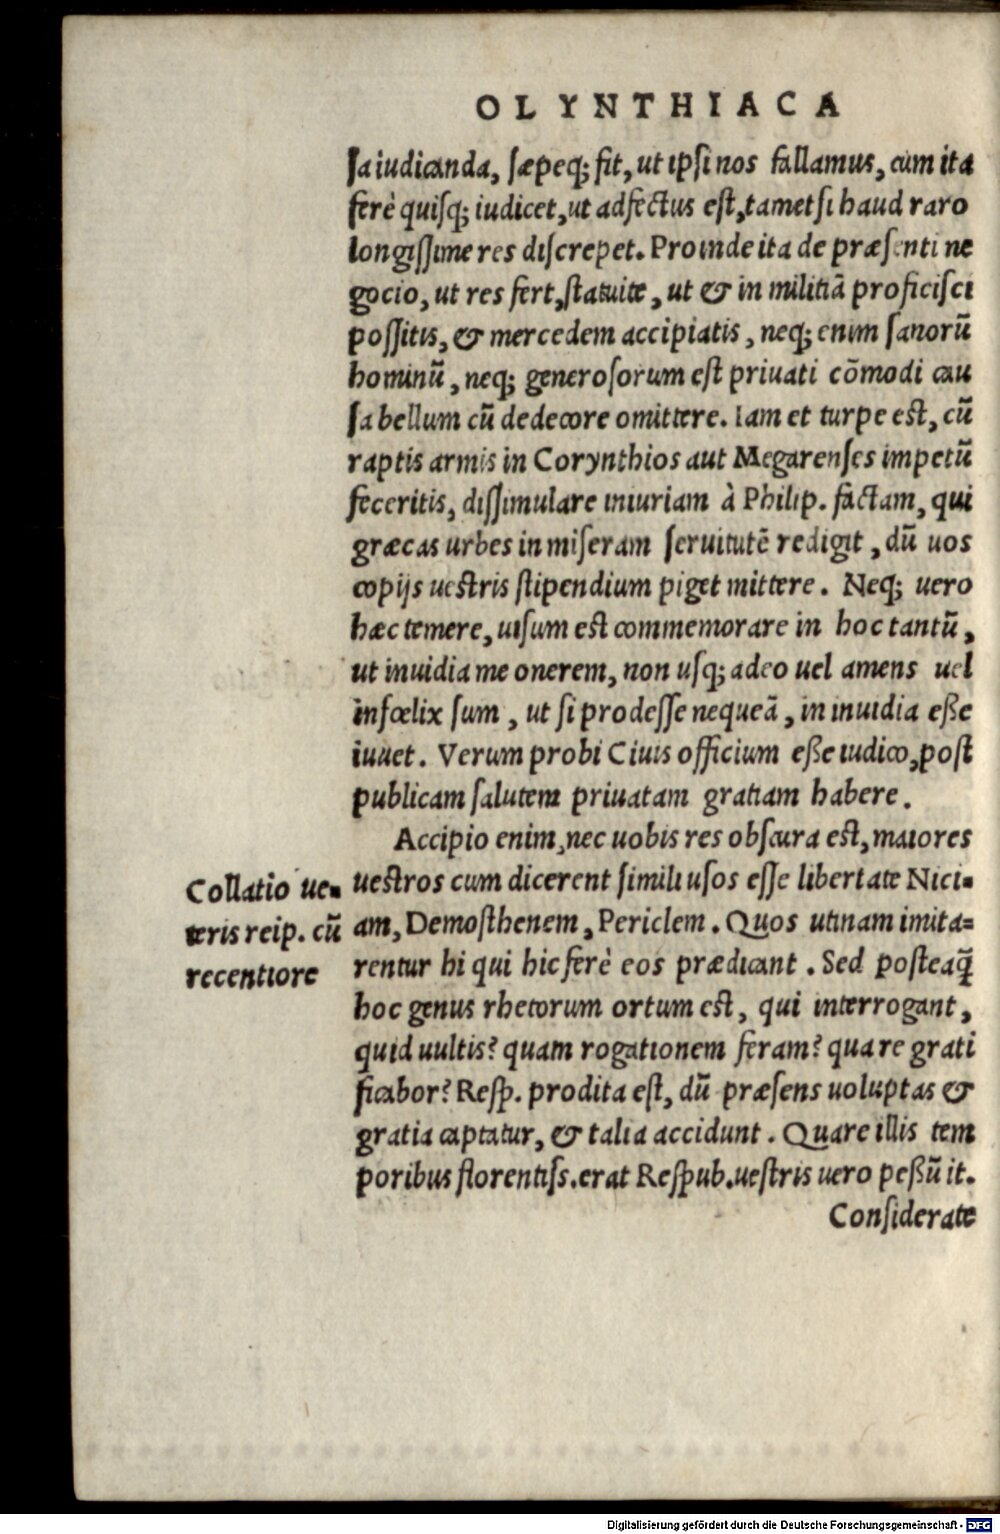 OLYNTHIACA
ſa iudicanda, ſæpeq; fit, ut ipſi nos fallamus, cum ita
ferè quiſq; iudicet, ut adfectus eſt, tametſi haud raro
longiſſime res diſcrepet. Proinde ita de præſenti ne
gocio, ut res fert, ſtatuite, ut & in militiã proficiſci
poſſitis, & mercedem accipiatis, neq; enim ſanorũ
hominũ, neq; generoſorum eſt priuati cõmodi cau
ſa bellum cũ dedecore omittere. Iam et turpe eſt, cũ
raptis armis in Corynthios aut Megarenſes impetũ
feceritis, diſſimulare iniuriam à Philip. factam, qui
græcas urbes in miſeram ſeruitutẽ redigit, dũ uos
copijs ueſtris ſtipendium piget mittere. Neq; uero
hæc temere, uiſum eſt commemorare in hoc tantũ,
ut inuidia me onerem, non uſq; adeo uel amens uel
infœlix ſum, ut ſi prodeſſe nequeã, in inuidia eſſe
iuuet. Verum probi Ciuis officium eſſe iudico, poſt
publicam ſalutem priuatam gratiam habere.
Accipio enim, nec uobis res obſcura eſt, maiores
ueſtros cum dicerent ſimili uſos eſſe libertate Nici-
am, Demoſthenem, Periclem. Quos utinam imita-
rentur hi qui hic ferè eos prædicant. Sed poſteaq̃
hoc genus rhetorum ortum eſt, qui interrogant,
quid uultis? quam rogationem feram? qua re grati
ficabor? Reſp. prodita eſt, dũ præſens uoluptas &
gratia captatur, & talia accidunt. Quare illis tem
poribus florentiſs. erat Reſpub. ueſtris uero peſſũ it.
Considerate
Collatio ue-
teris reip. cũ
recentiore
Digitalisierung gefördert durch die Deutsche Forschungsgemeinschaft - DFG